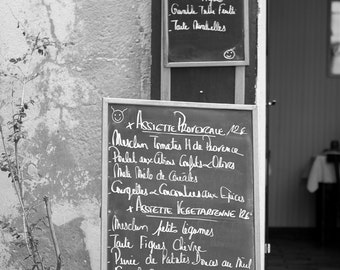 Grenoble Tuile Feuille
- Tarte Mirabelles
+ Assiette Provençale 12 €
Mesclun Tomates H de Provence
Poulet aux Citrons Confits & Olives
Méli Mélo de Céréales
Courgettes & Concombres aux Epices
+ Assiette Végétarienne 12 €
Mesclun petits légumes
Tarte Figues Chèvre
Purée de Patates Douces au Miel